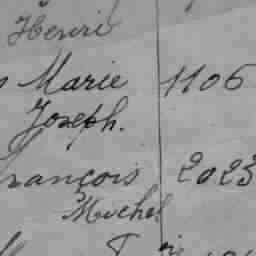 Henri
Marie 1106
Joseph.
François 2023
Michel